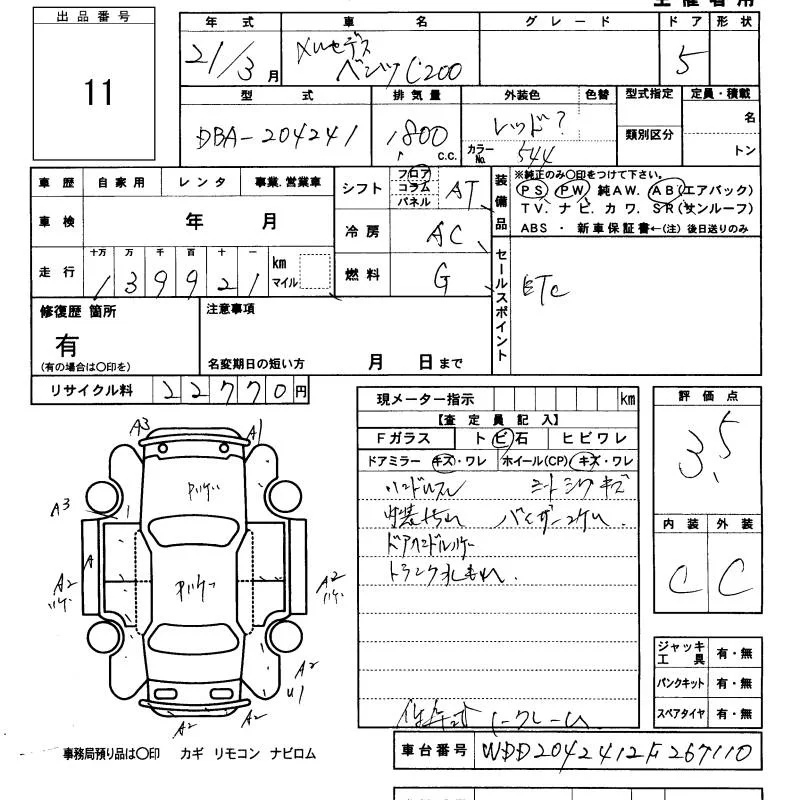 出品番号
11
年式 車名 グレード ドア 形状
21/3月 メルセデス ベンツ C200 5
型式 排気量 外装色 色替 型式指定 定員・積載
DBA-204241 1800 c.c. レッド? 類別区分 名
カラーNo. 544 トン
車歴 自家用 レンタ 事業.営業車
車検 年 月
走行 十万 万 千 百 十 一
139921 km マイル
シフト フロア コラム パネル AT
冷房 AC
燃料 G
装備品
※純正のみ○印をつけて下さい。
PS PW 純AW. AB(エアバック)
TV. ナビ. カワ. SR(サンルーフ)
ABS ・ 新車保証書←(注) 後日送りのみ
セールスポイント
ETC
修復歴 箇所
有
(有の場合は○印を)
注意事項
名変期日の短い方 月 日まで
リサイクル料 22770円
現メーター指示 km
【査定員記入】
Fガラス トビ石 ヒビワレ
ドアミラー キズ・ワレ ホイール(CP) キズ・ワレ
ハンドルスレ シートシワキズ
内装ヨゴレ バイザーコゲ
ドアハンドルハゲ
トランク
評価点
3.5
内装 外装
C C
ジャッキ工具 有・無
パンクキット 有・無
スペアタイヤ 有・無
A3 A1
A3
A
A2
A2
A2
U1
A2 A2
車台番号 WDD2042412F267110
事務局預り品は○印 カギ リモコン ナビロム